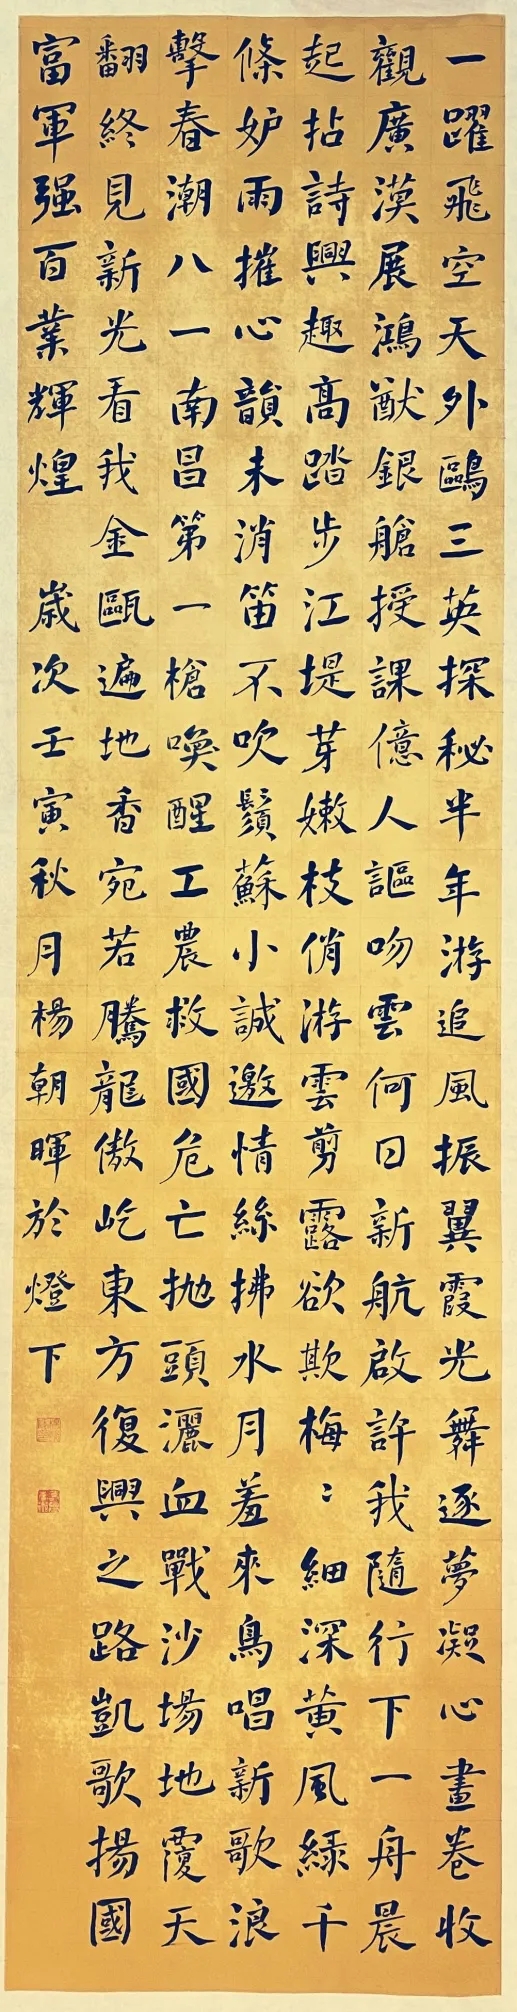 一躍飛空天外鷗三英探秘半年游追風振翼霞光舞逐夢凝心畫卷收
觀廣漠展鴻猷銀艙授課億人謳吻雲何日新航啟許我隨行下一舟晨
起拈詩興趣高踏步江堤芽嫩枝俏游雲剪露欲欺梅〻細深黄風緑千
條妒雨摧心韻未消笛不吹鬚蘇小誠邀情絲拂水月羞來鳥唱新歌浪
擊春潮八一南昌第一槍喚醒工農救國危亡抛頭灑血戰沙場地覆天
翻終見新光看我金甌遍地香宛若騰龍傲屹東方復興之路凱歌揚國
富軍强百業輝煌 歲次壬寅秋月楊朝暉於燈下